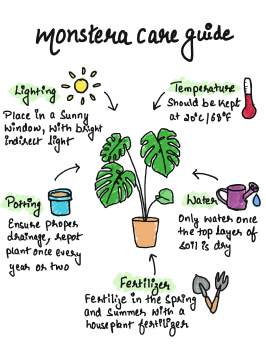 monstera care guide
Lighting
Place in a sunny
window, with bright
indirect light
Temperature
Should be kept
at 20°c/68°F
Potting
Ensure proper
drainage, repot
plant once every
year or two
Water
Only water once
the top layer of
soil is dry
Fertilizer
Fertilize in the spring
and summer with a
houseplant fertilizer